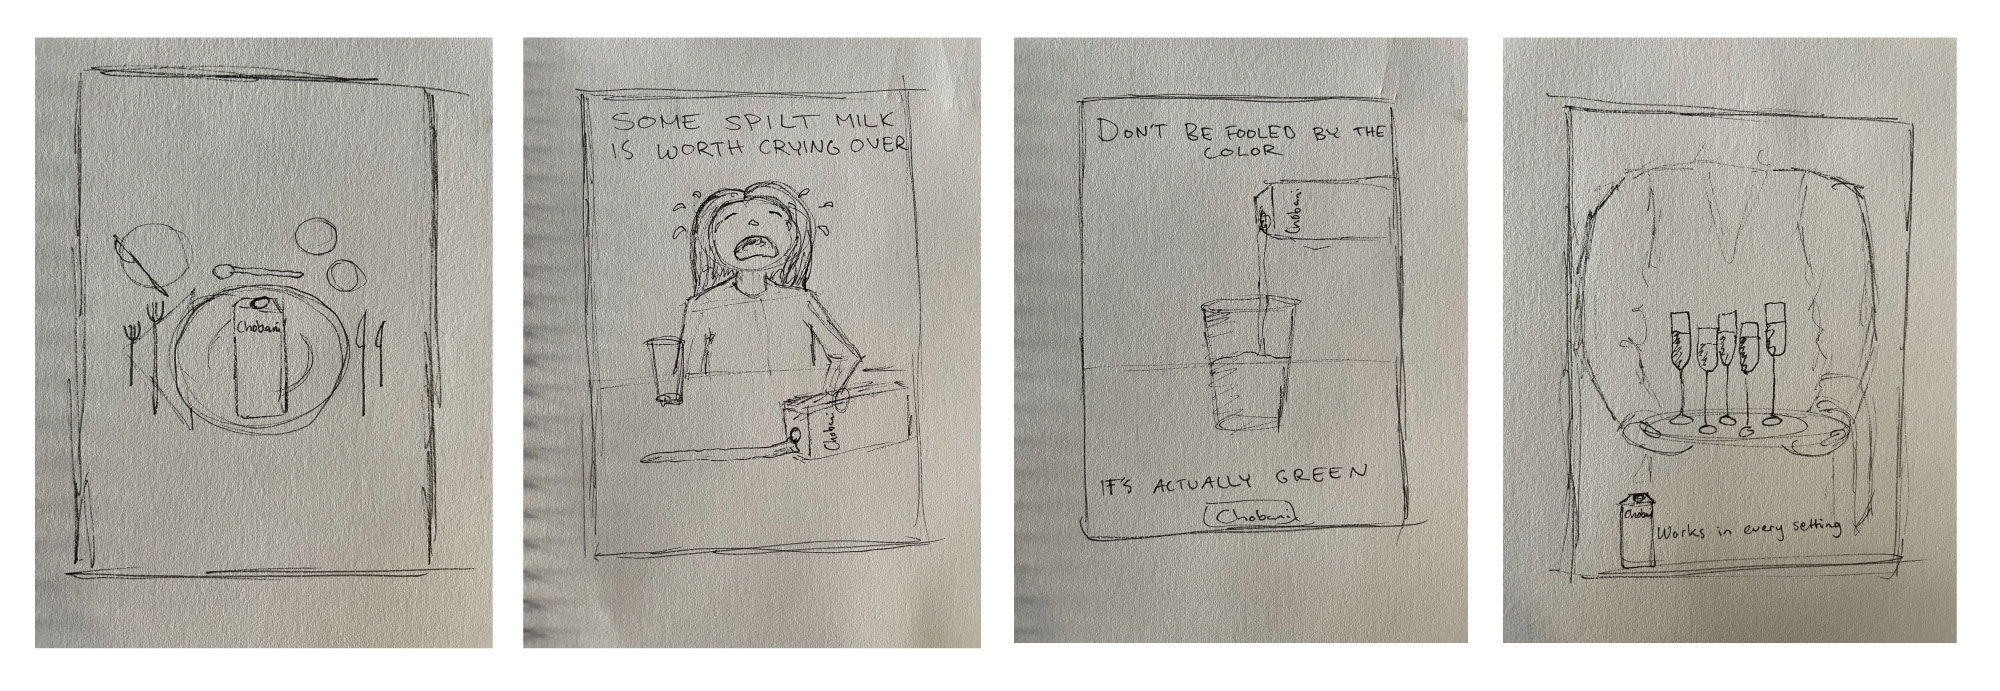 Chobani
SOME SPILT MILK
IS WORTH CRYING OVER
Chobani
DON'T BE FOOLED BY THE
COLOR
Chobani
IT'S ACTUALLY GREEN
Chobani
Chobani
Works in every setting